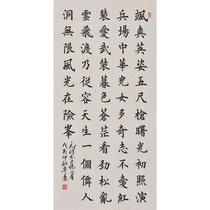 颯爽英姿五尺槍曙光初照演
兵場中華兒女多奇志不愛紅
裝愛武裝暮色蒼茫看勁松亂
雲飛渡乃從容天生一個僊人
洞無限風光在險峯